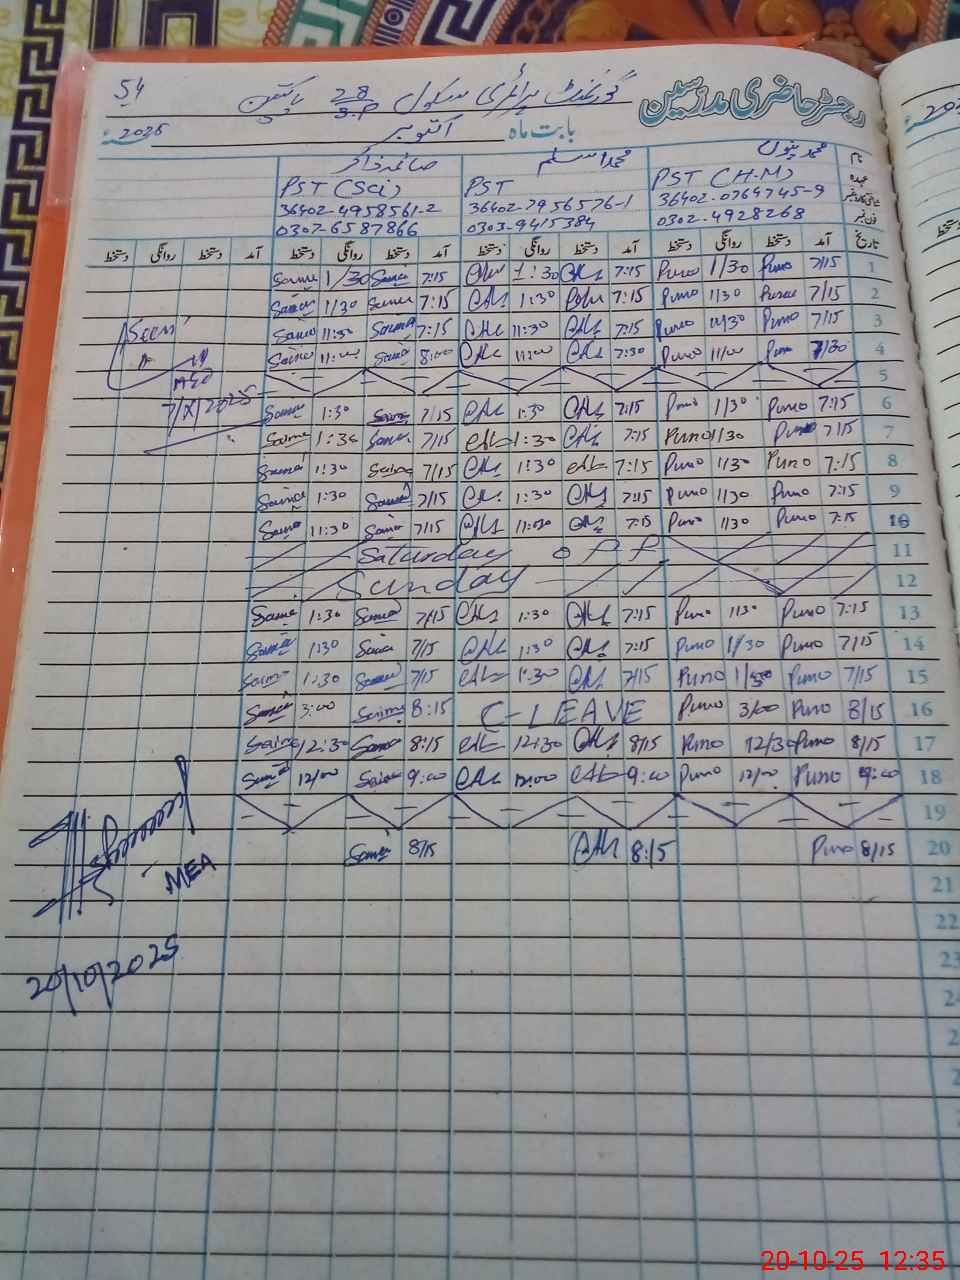 54
گورنمنٹ پرائمری سکول 28/S.P پاکپتن
رجسٹر حاضری مدرسین
بابت ماہ اکتوبر 2025ء
نام محمد اسلم صائمہ ذاکر
عہدہ PST (H.M) PST PST (Sci)
شناختی کارڈ نمبر 36402-0764745-9 36402-7956576-1 36402-4958561-2
فون نمبر 0302-4928268 0303-9415384 0307-6587866
تاریخ آمد دستخط روانگی دستخط آمد دستخط روانگی دستخط آمد دستخط روانگی دستخط آمد دستخط روانگی دستخط
1 7/15 Puno 1/30 Puno 7:15 1:30 7:15 Saima 1/30 Saima
2 7/15 Puno 1/30 Puno 7:15 1:30 7:15 Saima 1/30 Saima
3 7/15 Puno 11/30 Puno 7:15 11:30 7:15 Saima 11:30 Saima
4 7/30 Puno 11/00 Puno 7:30 11:00 8:00 Saima 11:00 Saima
5
6 7:15 Puno 1/30 Puno 7:15 1:30 7/15 Saima 1:30 Saima
7 7/15 Puno 1/30 Puno 7:15 1:30 7/15 Saima 1:30 Saima
8 7:15 Puno 1/30 Puno 7:15 1:30 7/15 Saima 1:30 Saima
9 7:15 Puno 1/30 Puno 7:15 1:30 7/15 Saima 1:30 Saima
10 7:15 Puno 1/30 Puno 7:15 7/15 Saima 11:30 Saima
11 Saturday off
12 Sunday
13 7:15 Puno 1/30 Puno 7:15 1:30 7/15 Saima 1:30 Saima
14 7/15 Puno 1/30 Puno 7:15 1:30 7/15 Saima 1:30 Saima
15 7/15 Puno 1/30 Puno 7/15 1:30 7/15 Saima 1:30 Saima
16 8/15 Puno 3/00 Puno C-LEAVE 8:15 Saima 3:00 Saima
17 8/15 Puno 12/30 Puno 8/15 12:30 8:15 Saima 12:30 Saima
18 9:00 Puno 12/00 Puno 9:00 12:00 9:00 Saima 12/00 Saima
19
20 8/15 Puno 8:15 8/15 Saima
21
22
23
Seen
AEO
7/X/2025
MEA
20/10/2025
20-10-25 12:35